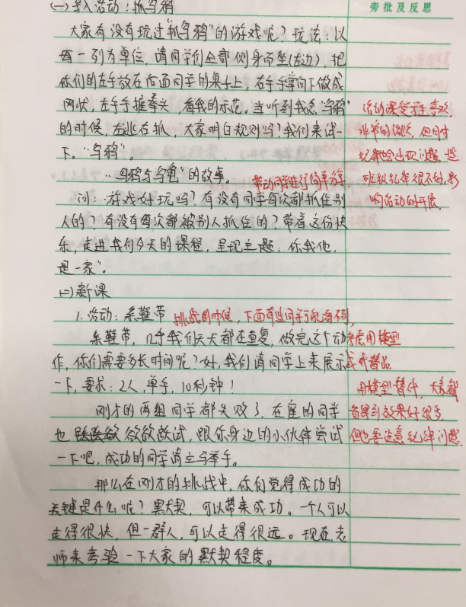 旁批及反思
(一)导入活动：抓乌鸦
大家有没有玩过"抓乌鸦"的游戏呢？玩法：以
每一列为单位，请同学们全部侧身而坐(左边)，把
你们的左手放在后面同学的桌子上，右手手掌向下做成
网状，左手手握拳头，看我的示范。当听到我念"乌鸦"
的时候，左逃右抓，大家明白规则吗？我们来试一
下。"乌鸦"。
"乌鸦与乌龟"的故事。
问：游戏好玩吗？有没有同学每次都抓住别
人的？有没有每次都被别人抓住的？带着这份快
乐，走进我们今天的课程，呈现主题：你我他，
是一家"。
(二)新课
1.活动：系鞋带 挑战的时候，下面有些同学
系鞋带，几乎我们天天都在重复，做完这个动
作，你们需要多长时间呢？好，我们请同学上来展示
一下，要求：2人，单手，10秒钟！
刚才的两组同学都失败了，在座的同学
也 欲欲欲试，跟你身边的小伙伴尝试
一下吧，成功的同学请立马举手。
那么在刚才的挑战中，你们觉得成功的
关键是什么呢？是默契，可以带来成功。一个人可以
走得很快，但一群人，可以走得很远。现在老
师来考验一下大家的默契程度。
活动课受
非常的 但同时
纪律 问题，
班级纪律很不好，影
响活动的开展。
使用模型
或替品
用模型替代，大家都
看得到效果好很多
但也要注意纪律问题